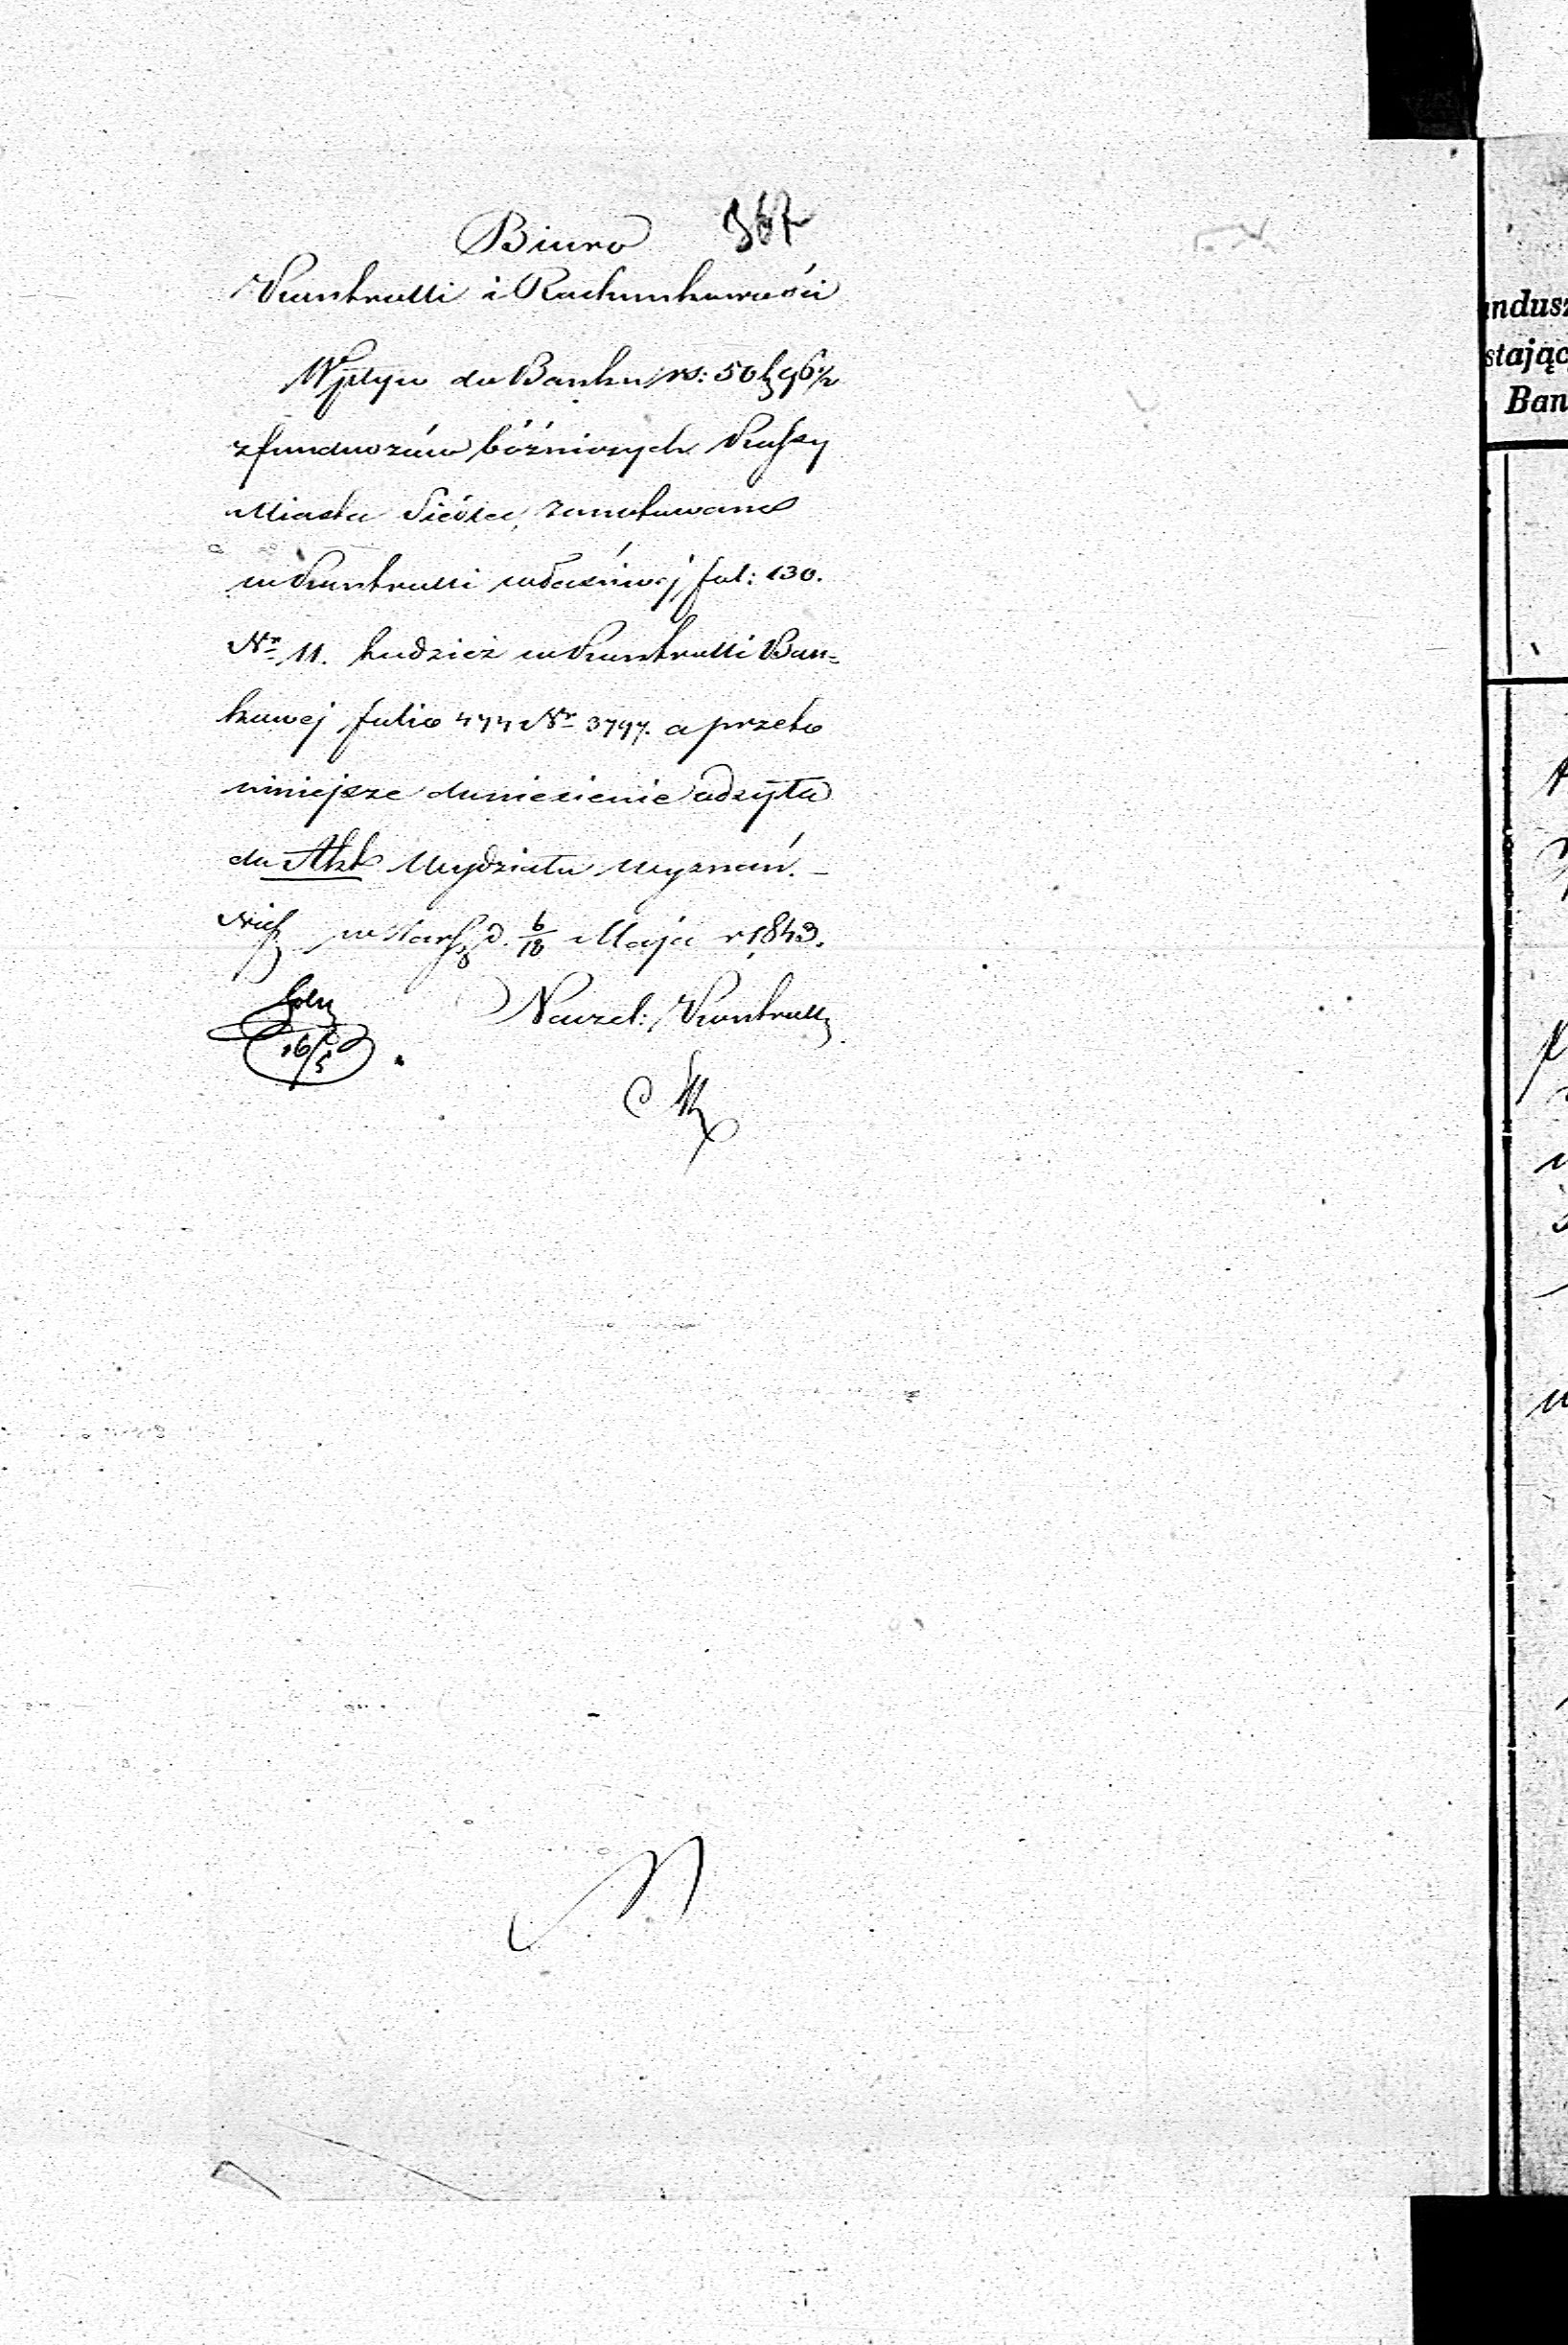 367
Biuro
Kontrolli i Rachunkowości
Wpływ do Banku rs: 50 k 96½
z funduszów bóźniczych Kassy
Miasta zanotowano
w Kontrolli właściwej fol: 130.
Nr 11. tudzież w Kontrolli Ban=
kowej folio 474 Nr 3797. a przeto
niniejsze doniesienie odsyła
do Akt Wydziału Wyznań.
w Warsz d. 6/18 Maja r 1843.
Naczel: Kontrolli
16/5
undusz
stając
Ban